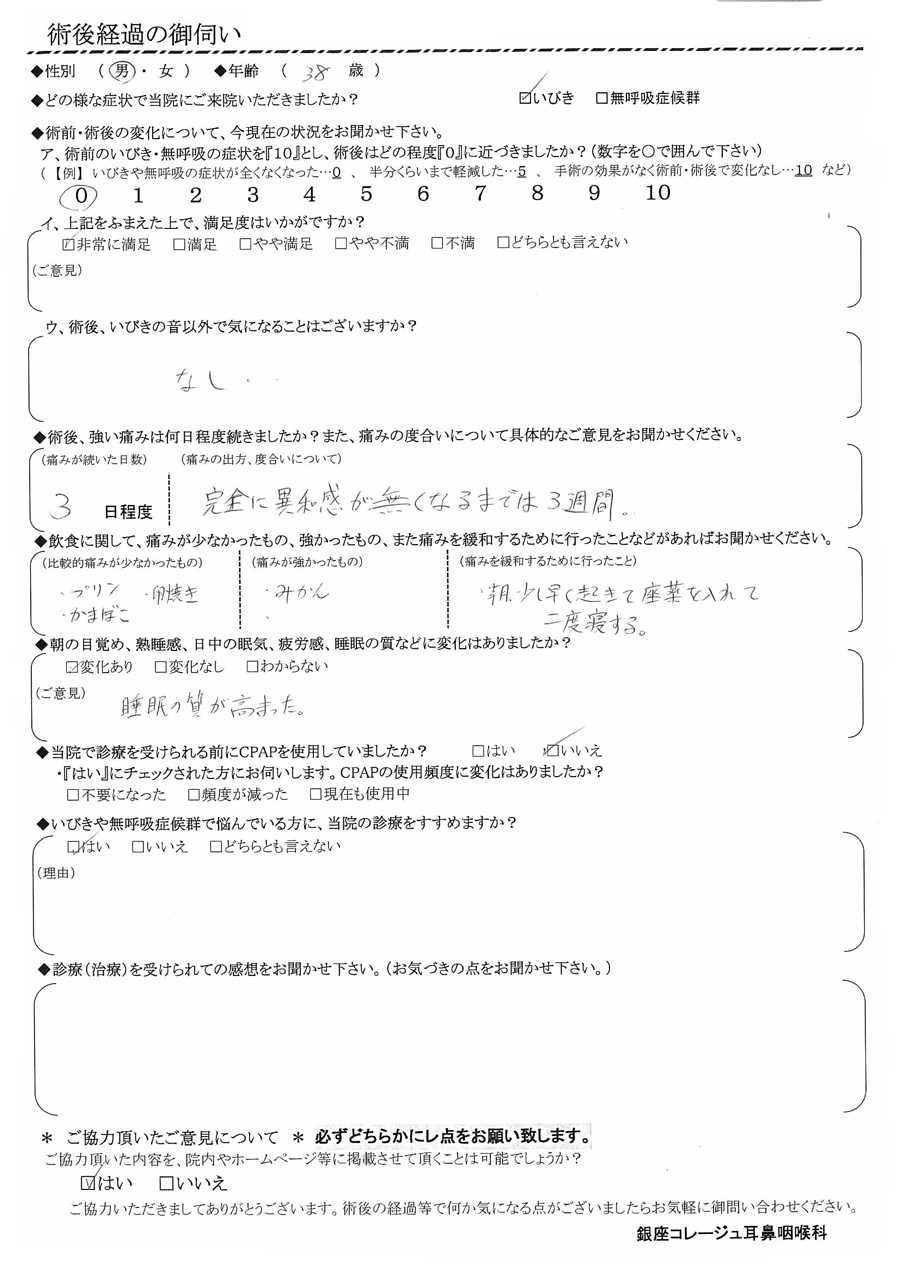 術後経過の御伺い
◆性別 （ 男 ・ 女 ） ◆年齢 （ 38 歳 ）
◆どの様な症状で当院にご来院いただきましたか？ ☑いびき □無呼吸症候群
◆術前・術後の変化について、今現在の状況をお聞かせ下さい。
ア、術前のいびき・無呼吸の症状を『10』とし、術後はどの程度『0』に近づきましたか？（数字を〇で囲んで下さい）
（【例】いびきや無呼吸の症状が全くなくなった…0 、 半分くらいまで軽減した…5 、 手術の効果がなく術前・術後で変化なし…10 など）
0 1 2 3 4 5 6 7 8 9 10
イ、上記をふまえた上で、満足度はいかがですか？
☑非常に満足 □満足 □やや満足 □やや不満 □不満 □どちらとも言えない
（ご意見）
ウ、術後、いびきの音以外で気になることはございますか？
なし・・
◆術後、強い痛みは何日程度続きましたか？また、痛みの度合いについて具体的なご意見をお聞かせください。
（痛みが続いた日数） （痛みの出方、度合いについて）
3 日程度 完全に異和感が無くなるまでは3週間。
◆飲食に関して、痛みが少なかったもの、強かったもの、また痛みを緩和するために行ったことなどがあればお聞かせください。
（比較的痛みが少なかったもの） （痛みが強かったもの） （痛みを緩和するために行ったこと）
・プリン ・卵焼き ・みかん ・朝、少し早く起きて座薬を入れて
・かまぼこ ・ 二度寝する。
◆朝の目覚め、熟睡感、日中の眠気、疲労感、睡眠の質などに変化はありましたか？
☑変化あり □変化なし □わからない
（ご意見） 睡眠の質が高まった。
◆当院で診療を受けられる前にCPAPを使用していましたか？ □はい ☑いいえ
・『はい』にチェックされた方にお伺いします。CPAPの使用頻度に変化はありましたか？
□不要になった □頻度が減った □現在も使用中
◆いびきや無呼吸症候群で悩んでいる方に、当院の診療をすすめますか？
☑はい □いいえ □どちらとも言えない
（理由）
◆診療（治療）を受けられての感想をお聞かせ下さい。（お気づきの点をお聞かせ下さい。）
＊ ご協力頂いたご意見について ＊ 必ずどちらかにレ点をお願い致します。
ご協力頂いた内容を、院内やホームページ等に掲載させて頂くことは可能でしょうか？
☑はい □いいえ
ご協力いただきましてありがとうございます。術後の経過等で何か気になる点がございましたらお気軽に御問い合わせください。
銀座コレージュ耳鼻咽喉科